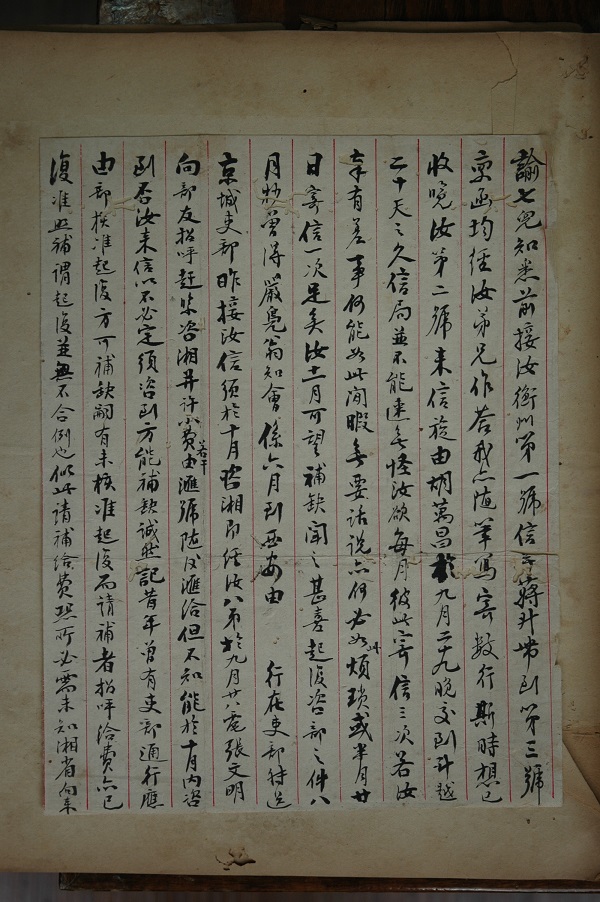 諭七兒知悉前接汝衡州第一號信蔣升帶到第三號
京函均經汝弟兄作答我亦隨筆寫寄數行斯時想已
收覽汝第二號來信旋由胡萬昌於九月二十九晚交到計越
二十天之久信局並不能速無怪汝欲每月彼此寄信三次若汝
幸有差事何能如此閒暇無要話說亦何必如此煩瑣或半月廿
日寄信一次足矣汝十一月可望補缺聞之甚喜起復咨部之件八
月杪曾得嚴翁知會係六月到西安由 行在吏部轉送
京城吏部昨接汝信須於十月咨湘即經汝八弟於九月廿八choose張文明
向部友招呼趕緊咨湘並許小費若干由匯號隨後匯給但不知能於十月內咨
到否汝來信以不必定須咨到方能補缺誠然記昔年曾有吏部通行應
由部核准起復方可補缺嗣有未核准起復而請補者招呼給費亦已
復准照補謂起復並無不合例也似此請補給費恐所必需未知湘省向來